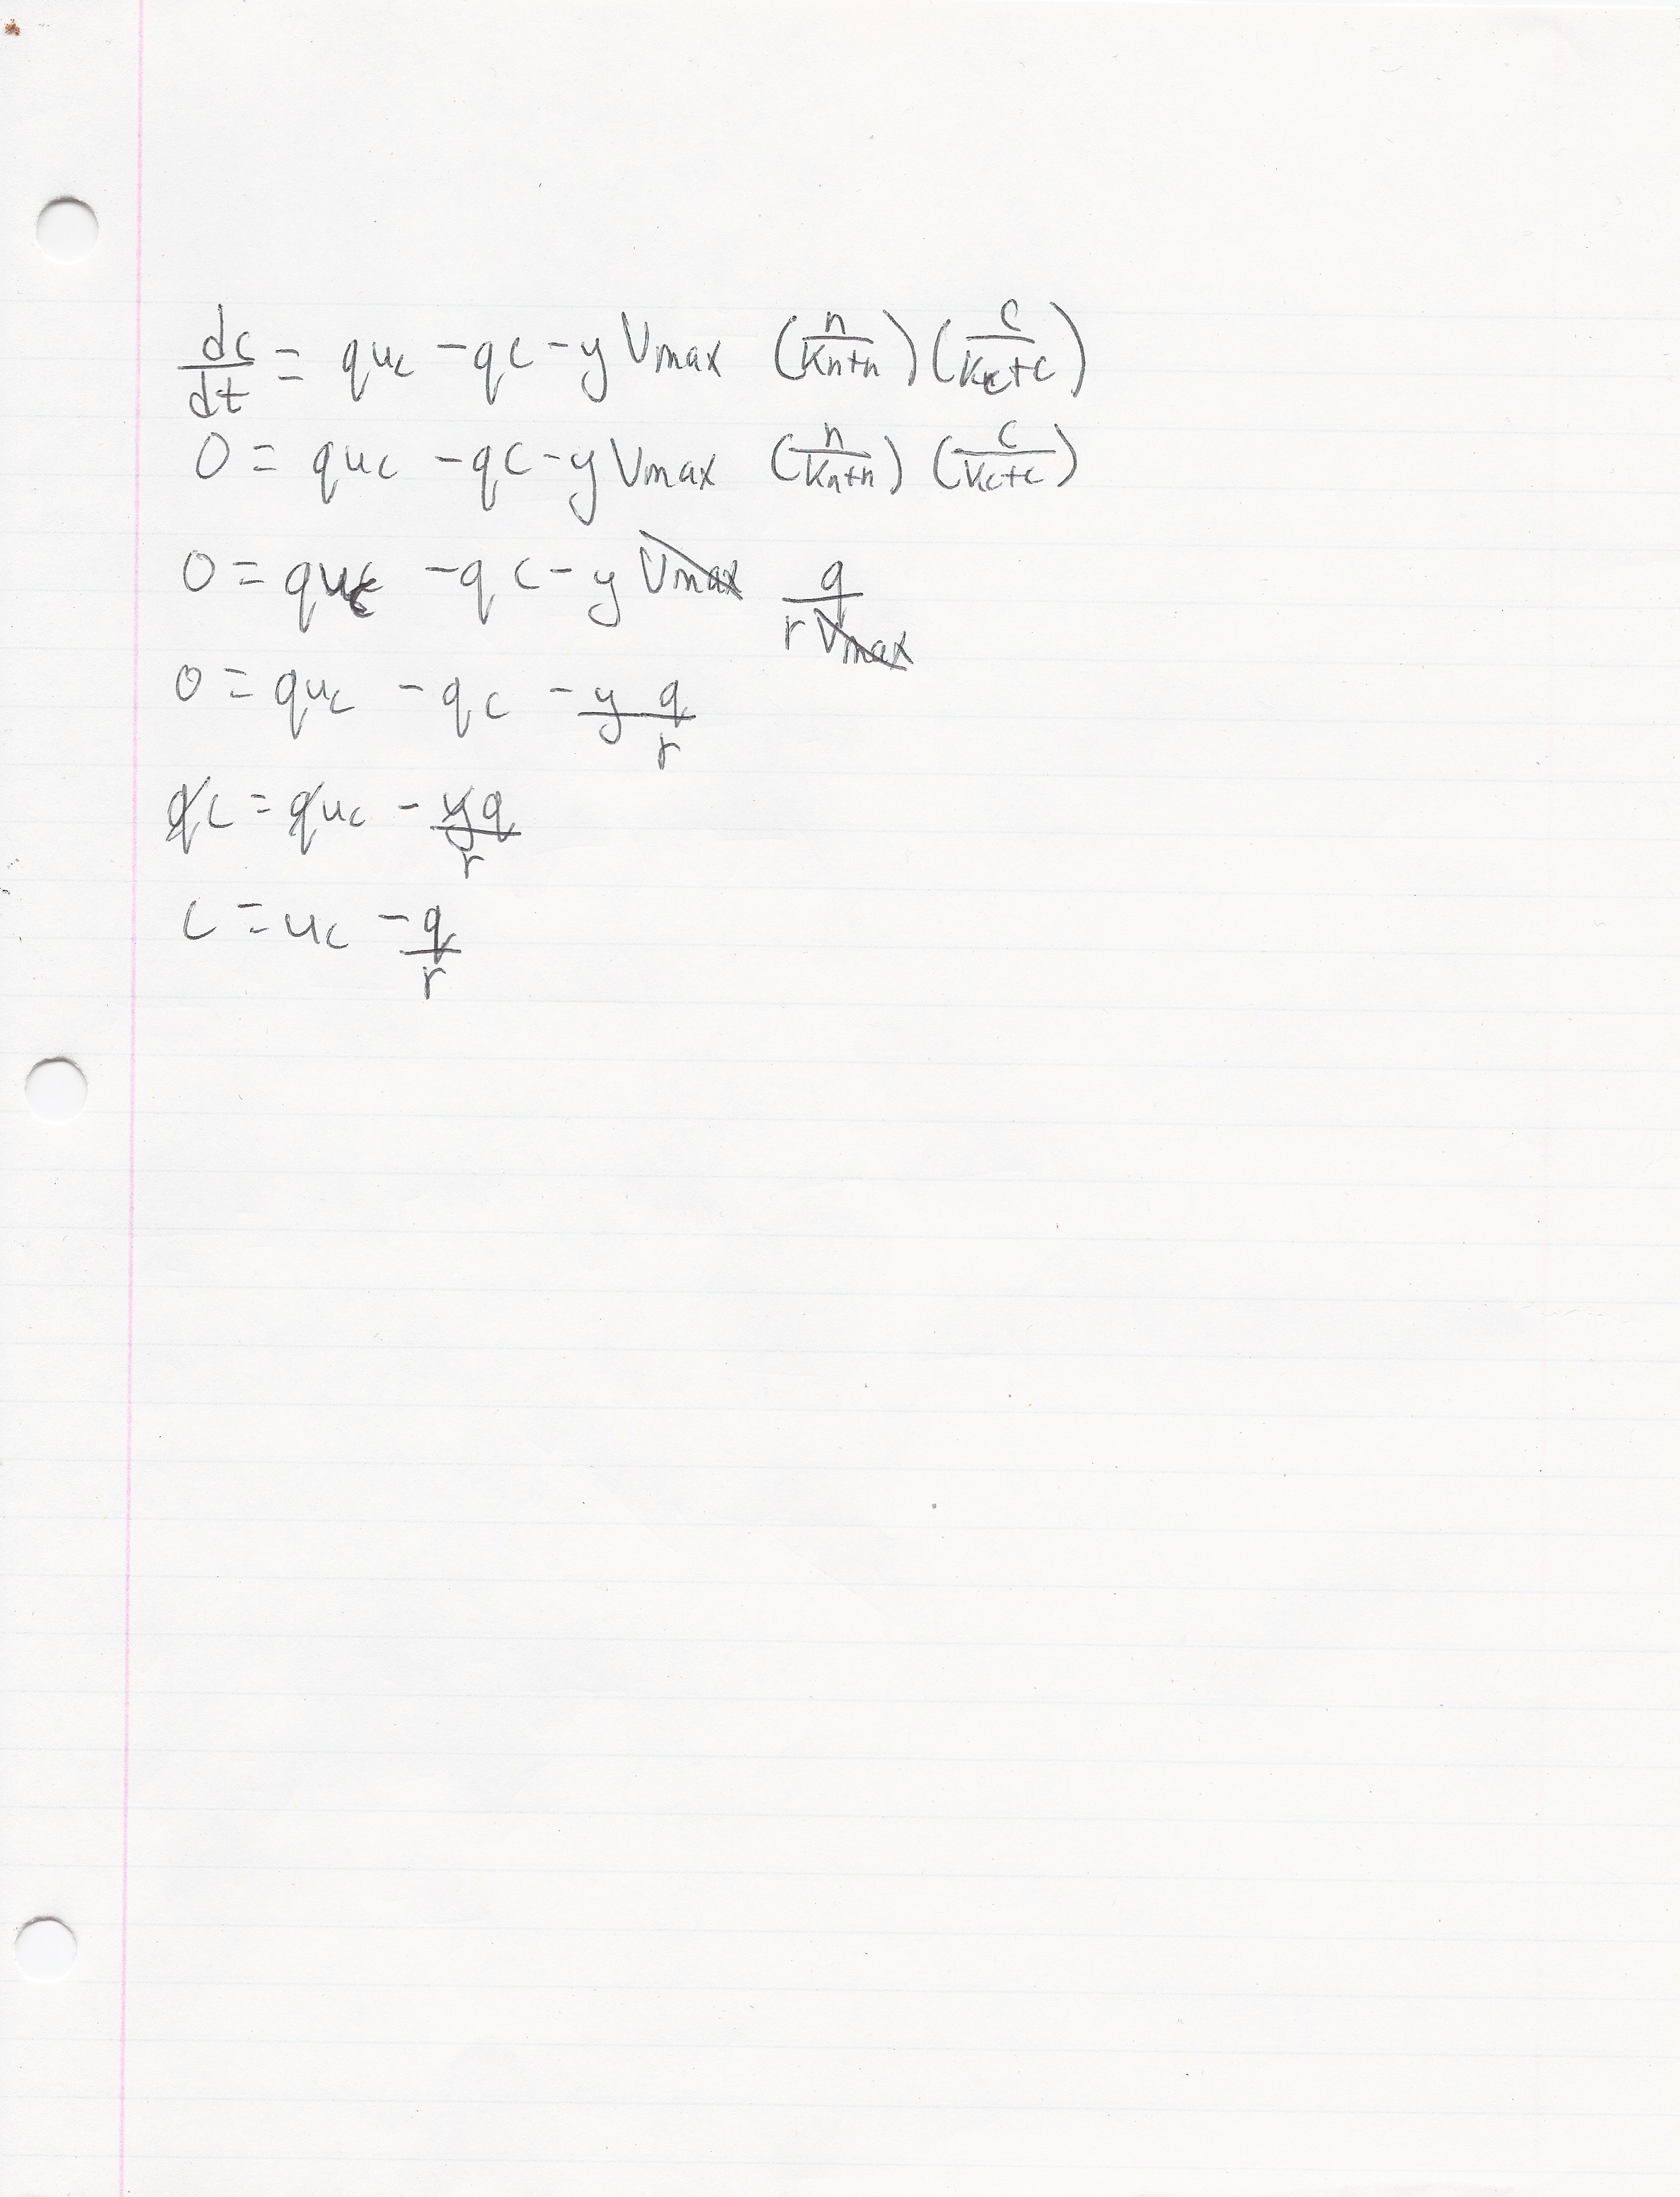 dc/dt = quc - qc - y Vmax (n/(Kn+n)) (c/(Kc+c))
0 = quc - qc - y Vmax (n/(Kn+n)) (c/(Kc+c))
0 = quc - qc - y Vmax q/(r Vmax)
0 = quc - qc - y q/r
qc = quc - yq/r
c = uc - q/r